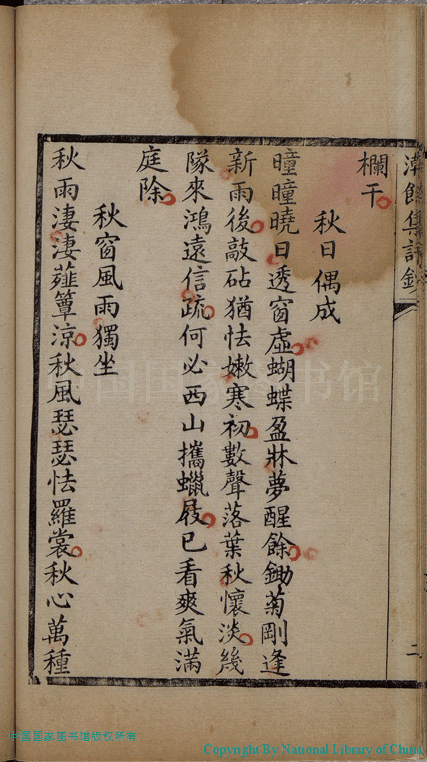 湋餘集詩鈔
二
欄干
秋日偶成
曈曈曉日透窗虛蝴蝶盈牀夢醒餘鋤菊剛逢
新雨後敲砧猶怯嫩寒初數聲落葉秋懷淡幾
隊來鴻遠信疏何必西山攜蠟屐已看爽氣滿
庭除
秋窗風雨獨坐
秋雨淒淒薤簟涼秋風瑟瑟怯羅裳秋心萬種
中国国家图书馆
中国国家图书馆版权所有
Copyright By National Library of China